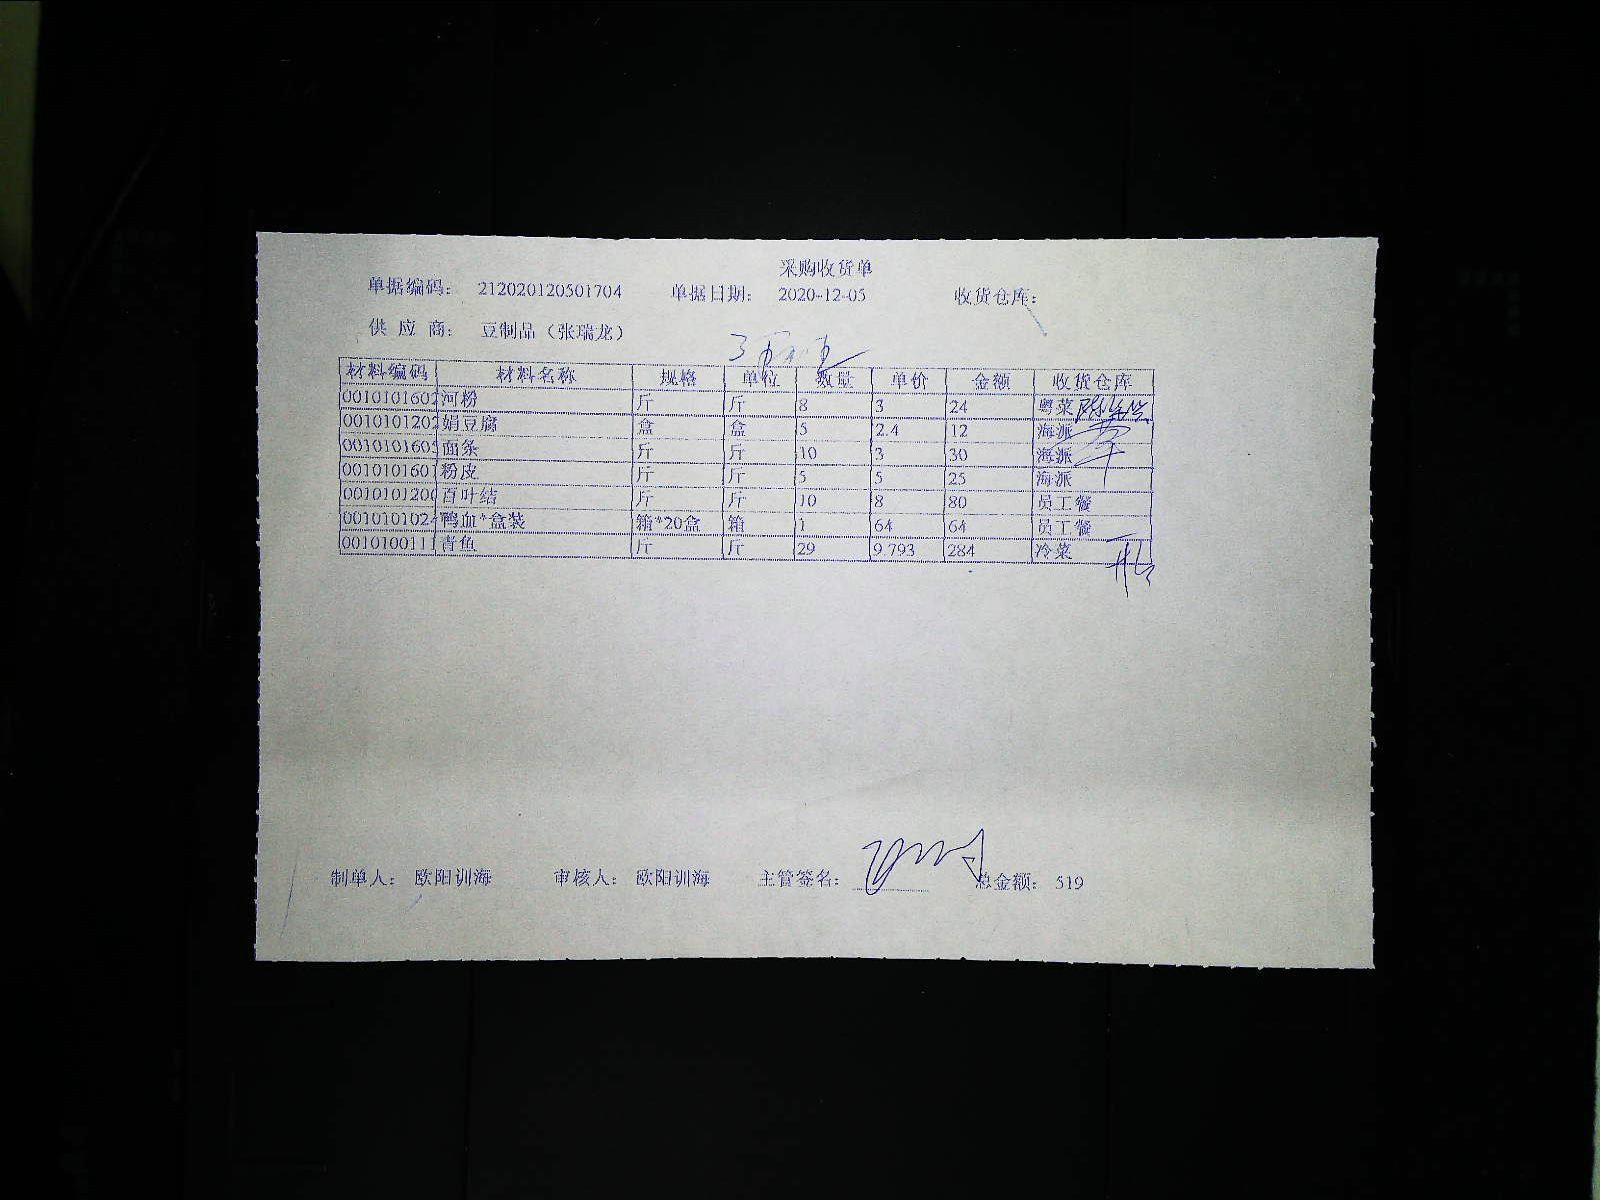 采购收货单
单据编码: 212020120501704 单据日期: 2020-12-05 收货仓库:
供 应 商: 豆制品（张瑞龙）
材料编码 材料名称 规格 单位 数量 单价 金额 收货仓库
0010101602 河粉 斤 斤 8 3 24 粤菜
0010101202 娟豆腐 盒 盒 5 2.4 12 海派
001010160 面条 斤 斤 10 3 30 海派
0010101601 粉皮 斤 斤 5 5 25 海派
001010120 百叶结 斤 斤 10 8 80 员工餐
001010102 鸭血*盒装 箱*20盒 箱 1 64 64 员工餐
0010100111 青鱼 斤 斤 29 9.793 284 冷菜
制单人: 欧阳训海 审核人: 欧阳训海 主管签名: 总金额: 519